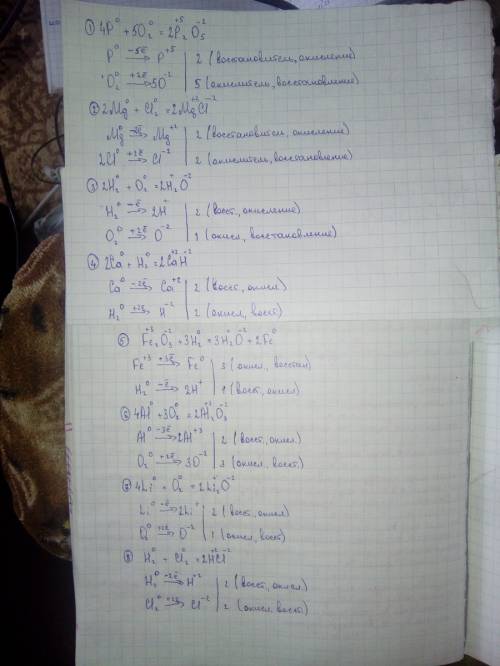 ① 4P⁰ + 5O₂⁰ = 2P₂⁺⁵O₅⁻²
P⁰ —-5ē→ P⁺⁵ | 2 (восстановитель, окисление)
O₂⁰ —+2ē→ 5O⁻² | 5 (окислитель, восстановление)
② 2Mg⁰ + Cl₂⁰ = 2Mg⁺²Cl⁻²
Mg⁰ —-2ē→ Mg⁺² | 2 (восстановитель, окисление)
2Cl⁰ —+2ē→ Cl⁻² | 2 (окислитель, восстановление)
③ 2H₂⁰ + O₂⁰ = 2H₂⁺O⁻²
H₂⁰ —-ē→ 2H⁺ | 2 (восст, окисление)
O₂⁰ —+2ē→ O⁻² | 1 (окисл, восстановление)
④ 2Ca⁰ + H₂⁰ = 2Ca⁺²H⁻²
Ca⁰ —-2ē→ Ca⁺² | 2 (восст, окисл)
H₂⁰ —+2ē→ H⁻² | 2 (окисл, восст)
⑤ Fe₂⁺³O₃⁻² + 3H₂⁰ = 3H₂⁺O⁻² + 2Fe⁰
Fe⁺³ —+3ē→ Fe⁰ | 3 (окисл, восстан)
H₂⁰ —-ē→ 2H⁺ | 1 (восст, окисл)
⑥ 4Al⁰ + 3O₂⁰ = 2Al₂⁺³O₃⁻²
Al⁰ —-3ē→ 2Al⁺³ | 2 (восст, окисл)
O₂⁰ —+2ē→ 3O⁻² | 3 (окисл, восст)
⑦ 4Li⁰ + O₂⁰ = 2Li₂⁺O⁻²
Li⁰ —-ē→ 2Li⁺ | 2 (восст, окисл)
O₂⁰ —+2ē→ O⁻² | 1 (окисл, восст)
⑧ H₂⁰ + Cl₂⁰ = 2H⁺²Cl⁻²
H₂⁰ —-2ē→ H⁺² | 2 (восст, окисл)
Cl₂⁰ —+2ē→ Cl⁻² | 2 (окисл, восст)